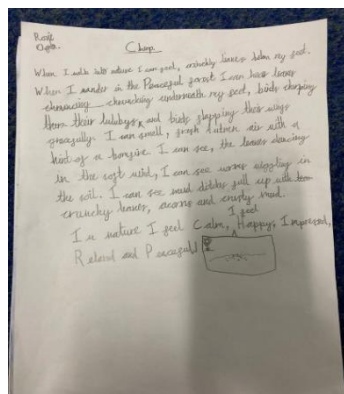 Chirp
When I walk into nature I can feel, crunchy leaves below my feet.
When I wander in the Peaceful forest I can hear leaves
crunching underneath my feet, birds chirping
their lullabys, and birds flapping their wings
gracefully. I can smell, fresh air with a
hint of a bonfire. I can see, the leaves dancing
in the soft wind, I can see worms wiggling in
the soil. I can see mud ditches full up with
crunchy leaves, acorns and crusty mud.
I feel
In nature I feel Calm, Happy, Impressed,
Relaxed and Peaceful